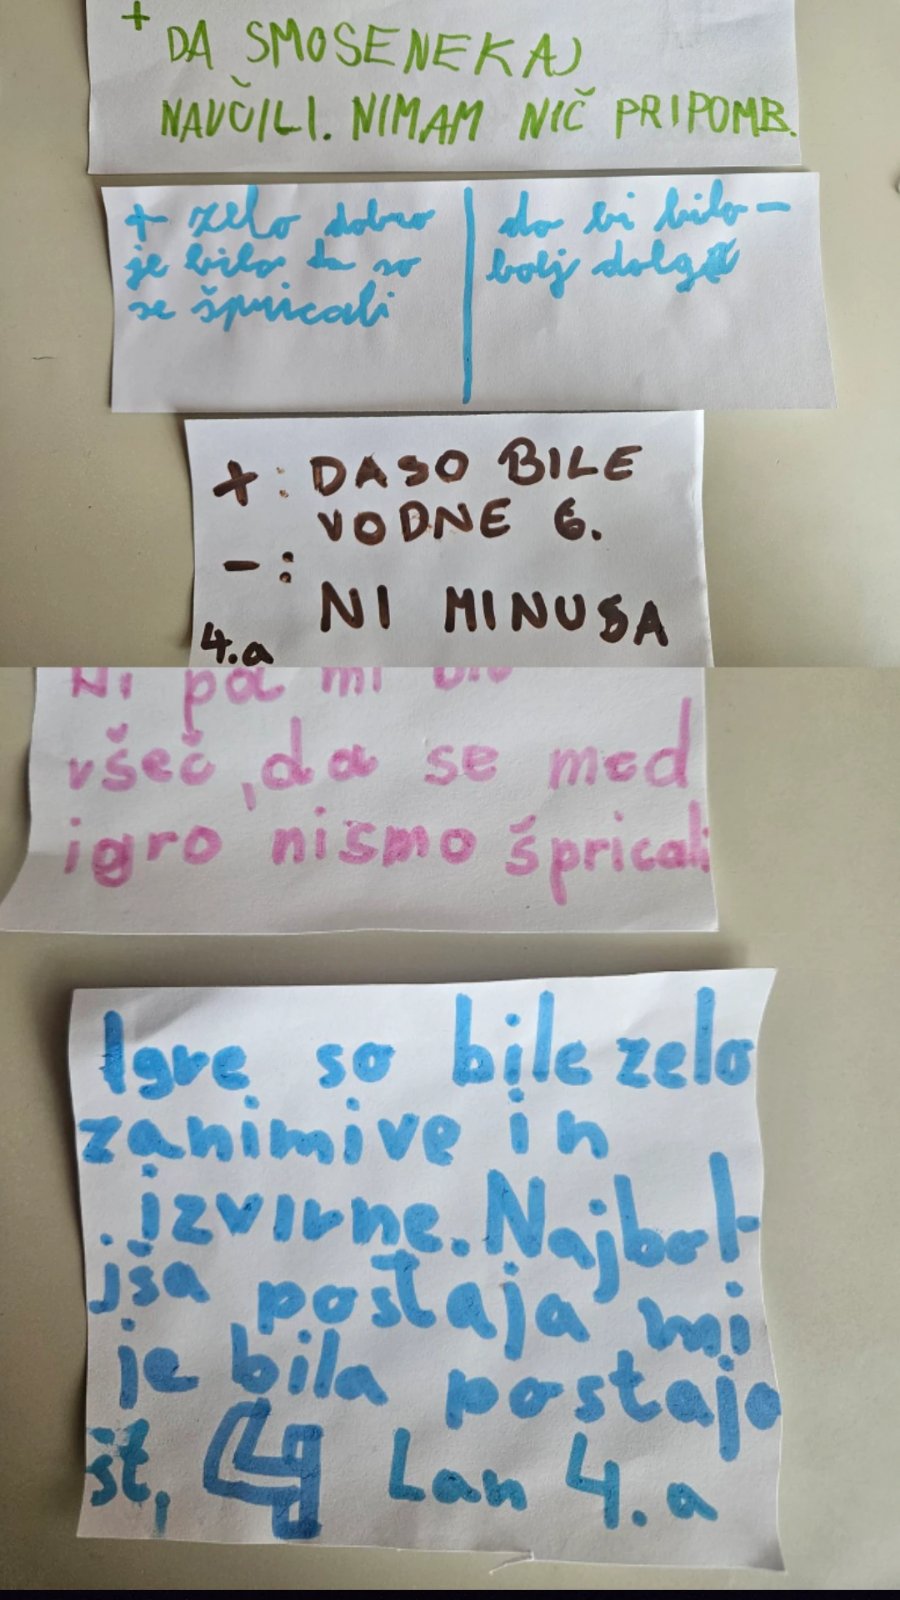 +
DA SMO SE NEKAJ
NAUČILI. NIMAM NIČ PRIPOMB.
+ zelo dobro
je bilo da so
se špricali
da bi bilo -
bolj dolg
+: DA SO BILE
VODNE 6.
-:
NI MINUSA
4.a
Ni pa mi bilo
všeč, da se med
igro nismo špricali
Igre so bile zelo
zanimive in
izvirne. Najbol-
jša postaja mi
je bila postaja
št, 4 Lan 4.a